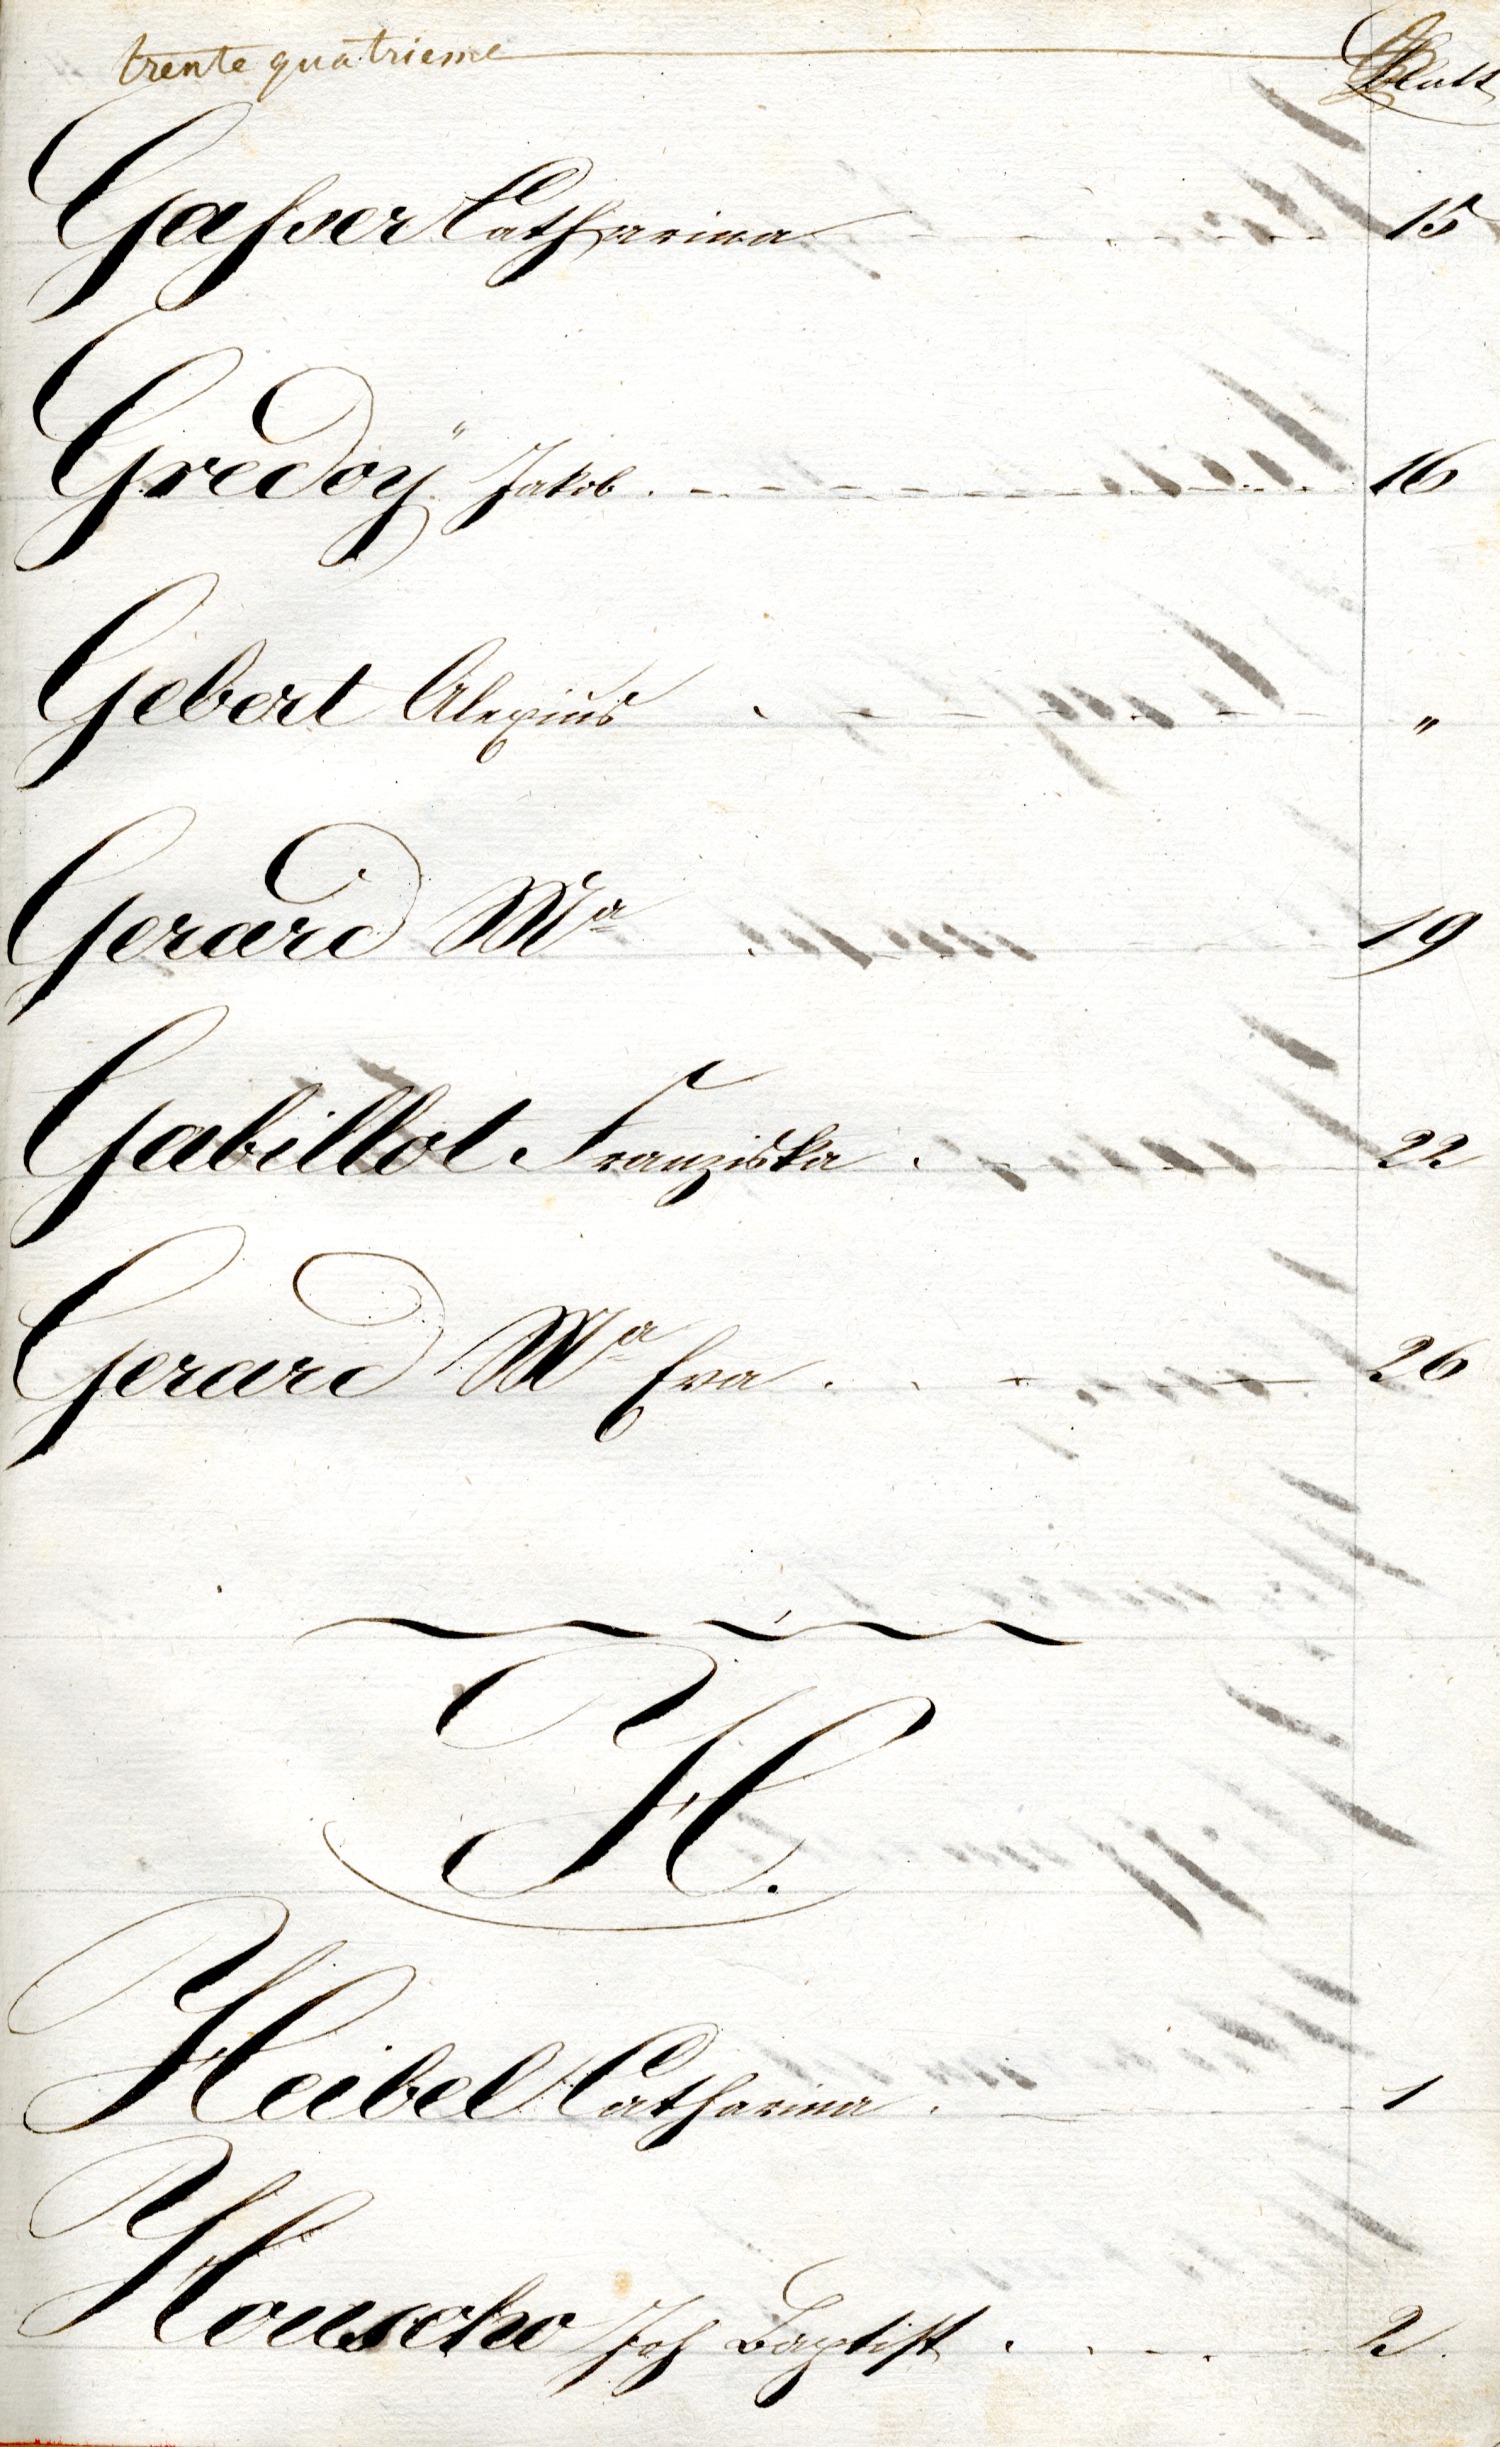 trente quatrieme Blatt
Gaſser Catharina 15
Gredoÿ Jakob 16
Gebert Alexius "
Gerard Ma 19
Gabillot Franziska 22
Gerard Ma Eva 26
H.
Heibel Catharina 1
Houscho Joh Baptist 2